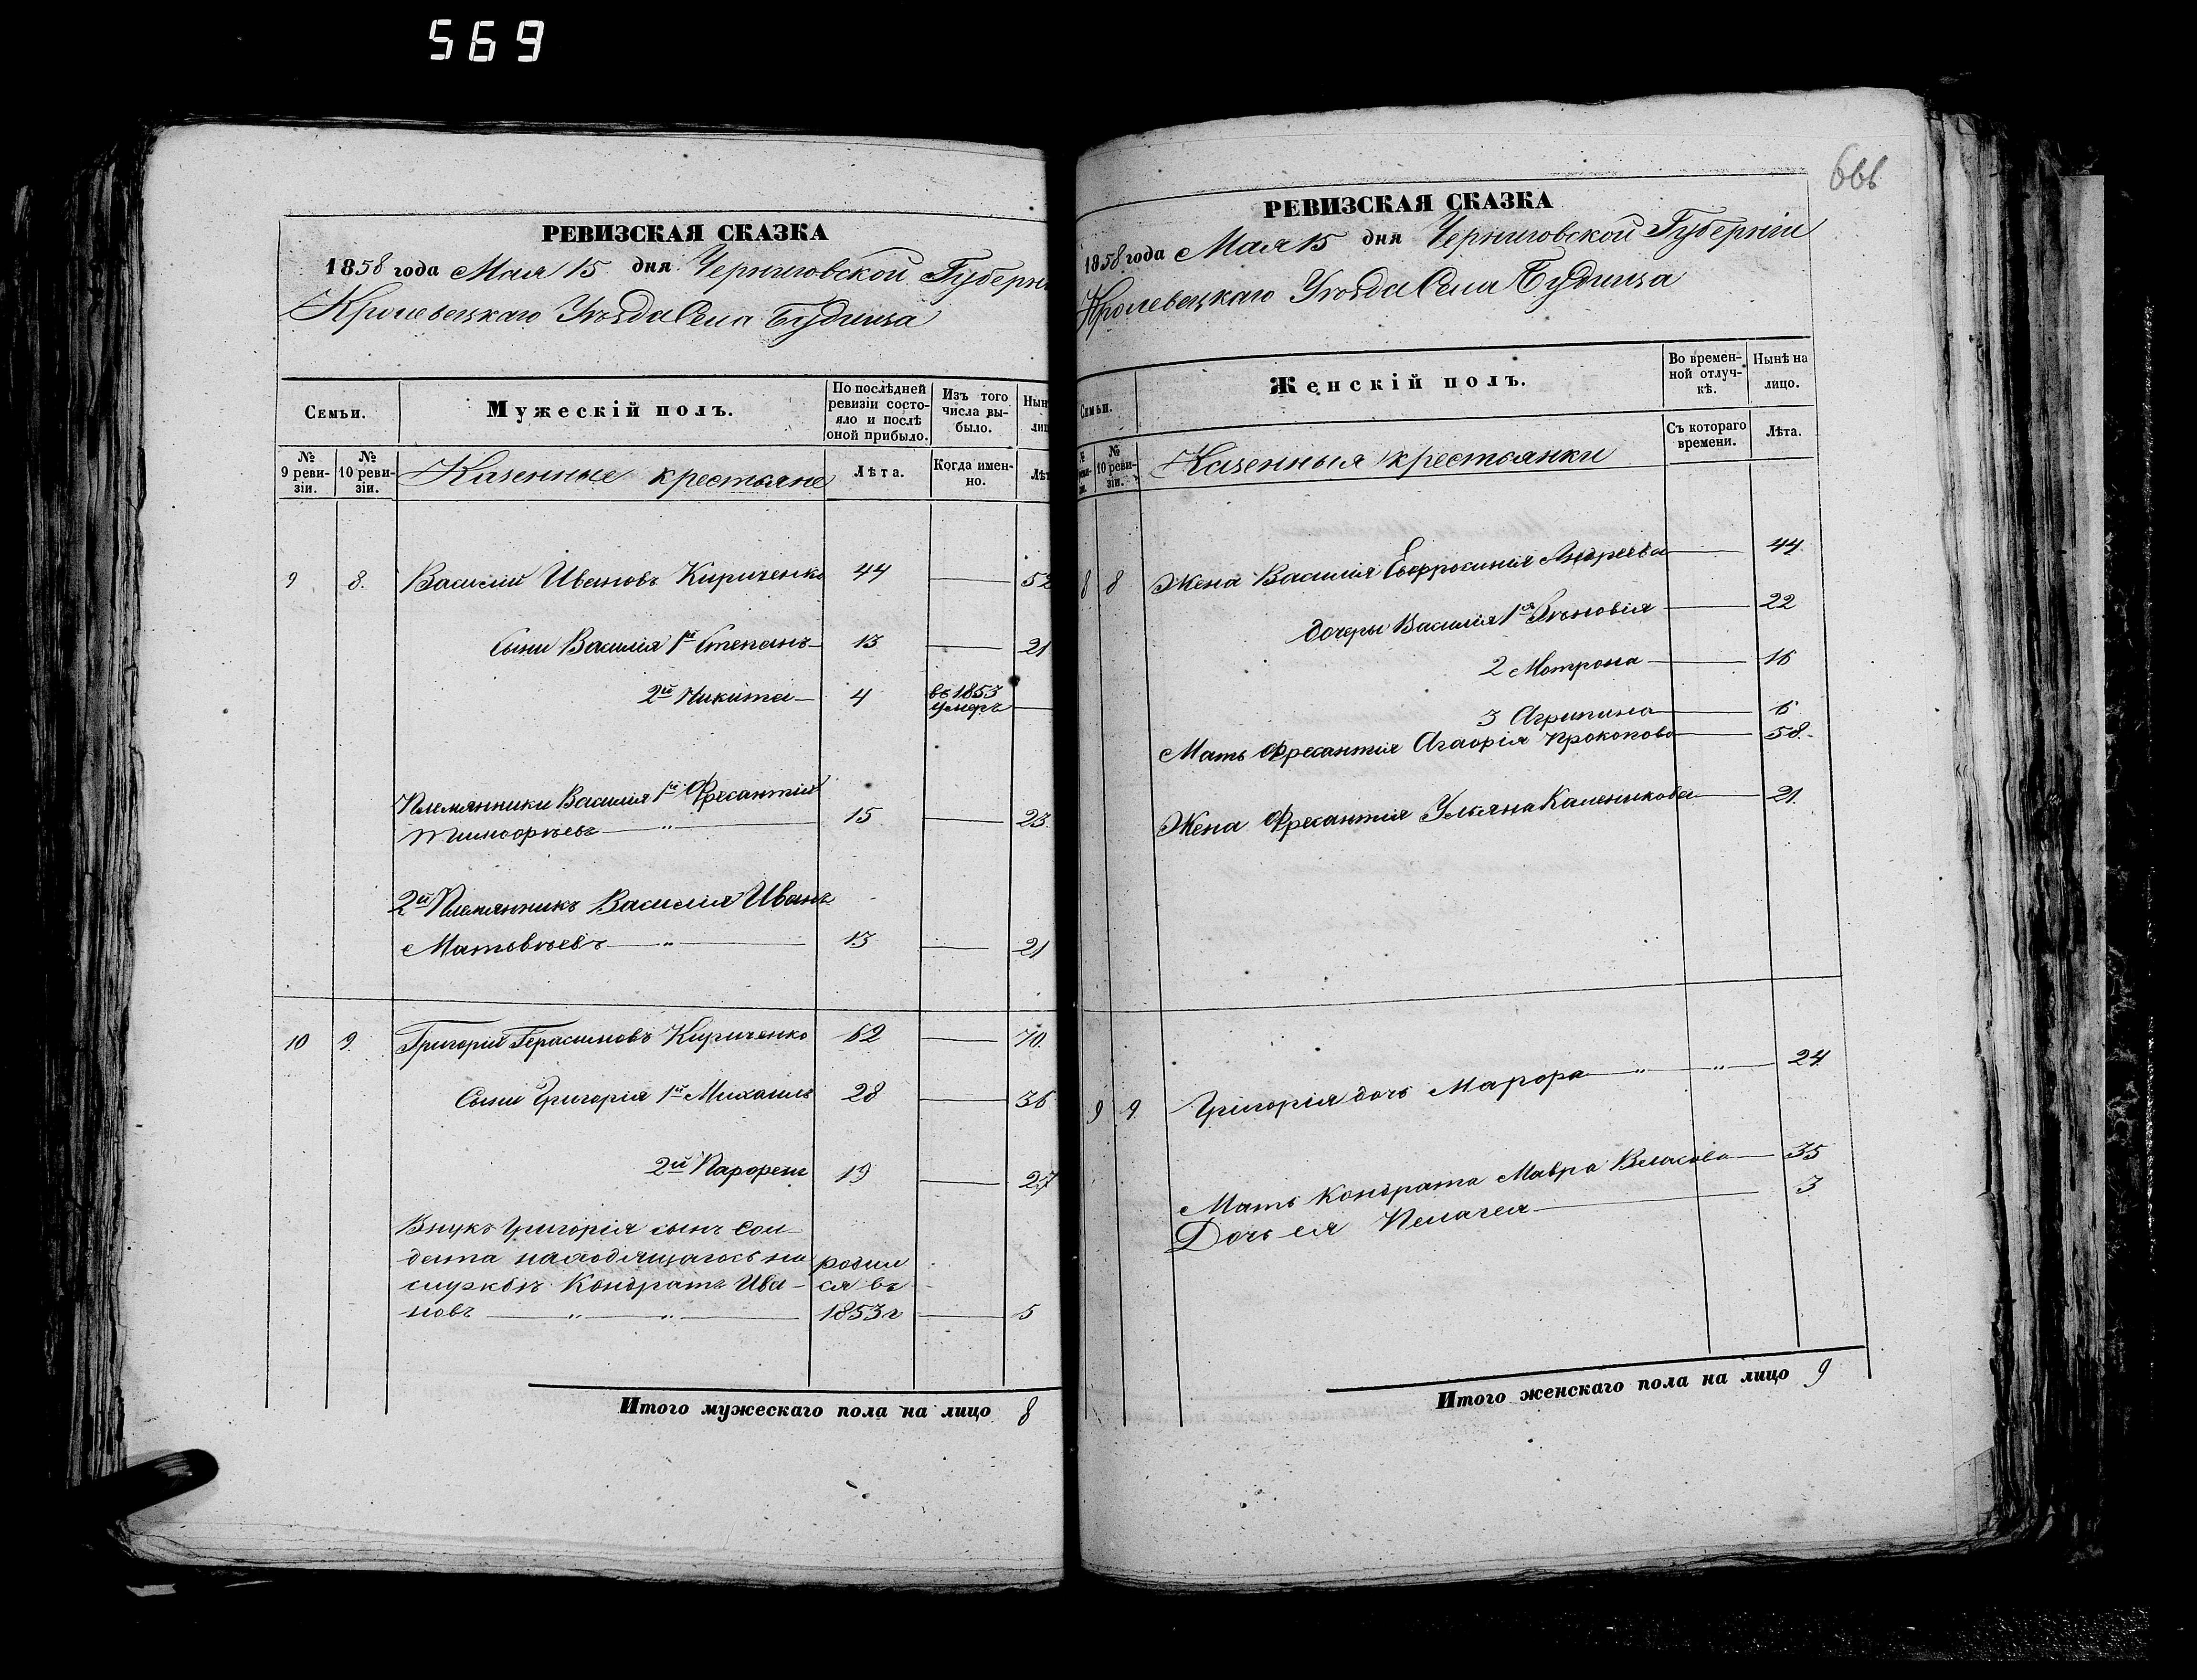 569
РЕВИЗСКАЯ СКАЗКА
1858 года Мая 15 дня Черниговской Губерн
Кролевецкаго Уѣзда Села Будища
Семьи.
Мужескій полъ.
По послѣдней ревизіи состояло и послѣ оной прибыло.
Изъ того числа выбыло.
Нын
лиц
№ 9 ревизіи.
№ 10 ревизіи.
Казенные крестьяне
Лѣта.
Когда именно.
Лѣт
9 8. Василій Ивановъ Кириченко 44 52
Сыни Василія 1й Степанъ 13 21
2й Никита 4 въ 1853 умеръ
Племянники Василія 1й
Тимофѣевъ 15 23
2й Племянникъ Василія Иванъ
Матвѣевъ 13 21
10 9. Григорій Герасимовъ Кириченко 62 70.
Сыни Григорія 1й Михаилъ 28 36
2й Парфенъ 19 27
Внукъ Григорія сынъ Сол-
дата находящагось на родил
службѣ Кондратъ Ива- ся въ
новъ 1853 г 5
Итого мужескаго пола на лицо 8
666
РЕВИЗСКАЯ СКАЗКА
1858 года Мая 15 дня Черниговской Губерніи
Кролевецкаго Уѣзда Села Будища
Семьи.
Женскій полъ.
Во временной отлучкѣ.
Нынѣ на лицо.
№ 10 ревизіи.
Казенныя крестьянки
Съ котораго времени.
Лѣта.
8 8 Жена Василія Евфросинія Андреева 44
дочеры Василія 1я 22
2 Мотрона 16
3 Агрипина 6
Мать Агафія Прокопова 58.
Жена Ульяна Каленикова 21.
9 9. Григорія дочь Марфа 24
Мать Кондрата Мавра Власова 35
Дочь ея Пелагея 3
Итого женскаго пола на лицо 9